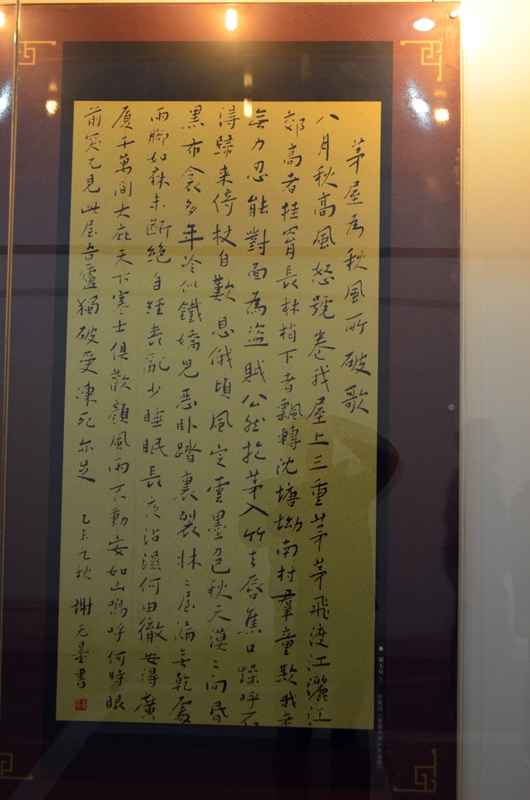 茅屋為秋風所破歌
八月秋高風怒號卷我屋上三重茅茅飛渡江灑江
郊高者挂罥長林梢下者飄轉沈塘坳南村羣童欺我老
無力忍能對面為盜賊公然抱茅入竹去唇焦口燥呼不
得歸來倚杖自歎息俄頃風定雲墨色秋天漠〻向昏
黑布衾多年冷似鐵嬌兒惡臥踏裏裂牀〻屋漏無乾處
雨腳如麻未斷絕自經喪亂少睡眠長夜沾濕何由徹安得廣
廈千萬間大庇天下寒士俱歡顏風雨不動安如山嗚呼何時眼
前突兀見此屋吾廬獨破受凍死亦足 乙未之秋 謝无量書